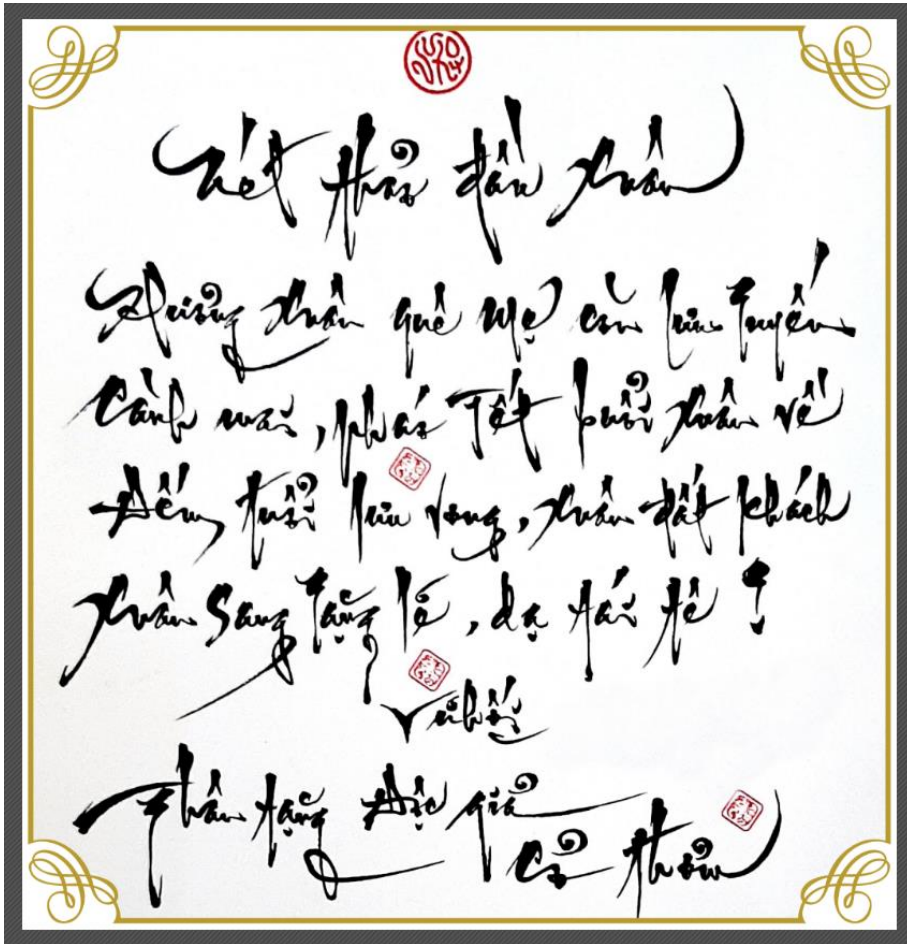 Nét thảo đầu xuân
Hưởng xuân quê Mẹ còn lưu luyến
Cành mai, pháo Tết buổi xuân về
Đếm tuổi lưu vong, xuân đất khách
Xuân sang lặng lẽ, dạ tái tê !
Vũ Hối
Thân tặng Độc giả
Cỏ Thơm